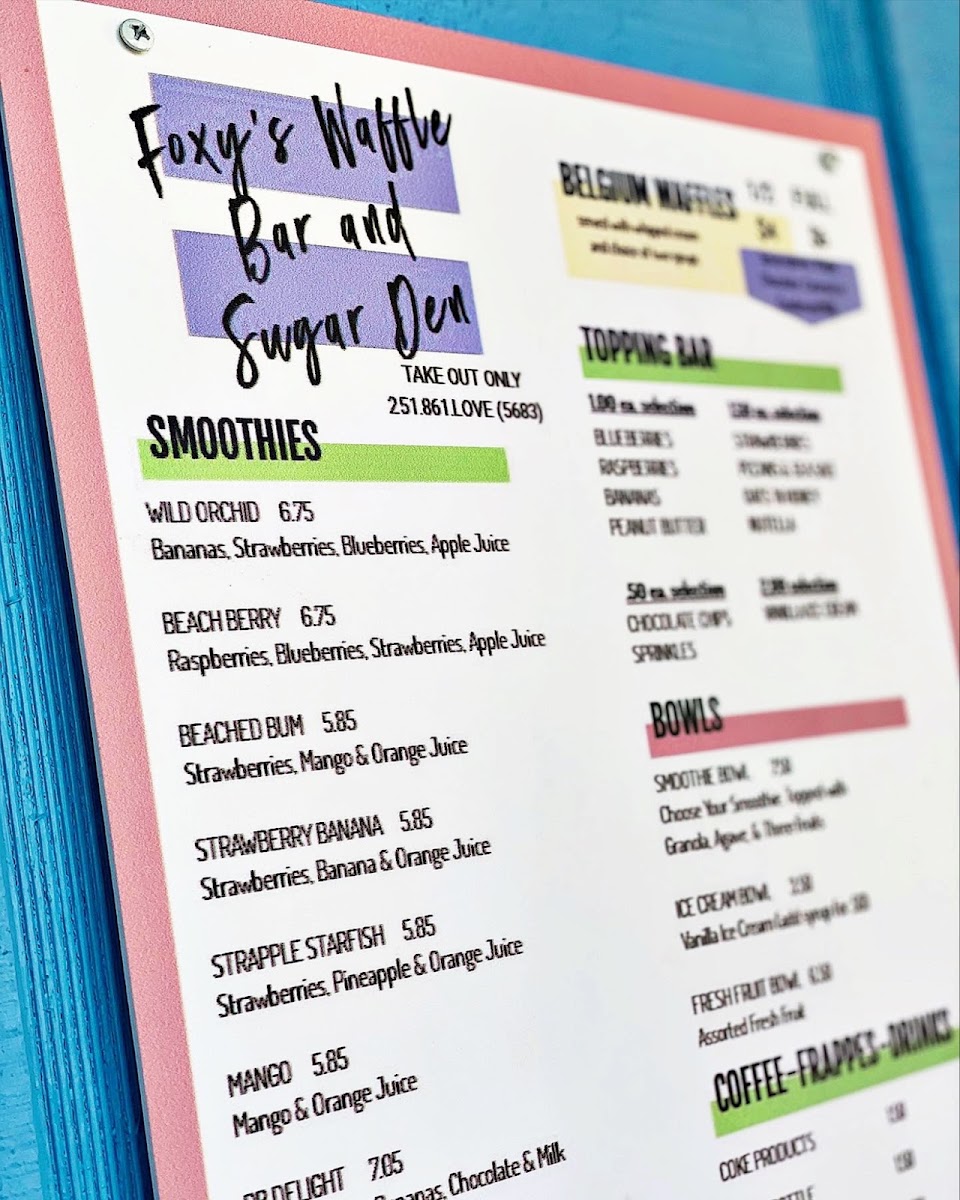 Foxy's Waffle
Bar and
Sugar Den
TAKE OUT ONLY
251.861.LOVE (5683)
SMOOTHIES
WILD ORCHID 6.75
Bananas, Strawberries, Blueberries, Apple Juice
BEACH BERRY 6.75
Raspberries, Blueberries, Strawberries, Apple Juice
BEACHED BUM 5.85
Strawberries, Mango & Orange Juice
STRAWBERRY BANANA 5.85
Strawberries, Banana & Orange Juice
STRAPPLE STARFISH 5.85
Strawberries, Pineapple & Orange Juice
MANGO 5.85
Mango & Orange Juice
DELIGHT 7.05
Chocolate & Milk
BELGIUM WAFFLES
served with whipped cream
and choice of
TOPPING BAR
1.00 ea. selection
BLUEBERRIES
RASPBERRIES
BANANAS
PEANUT BUTTER
selection
STRAWBERRIES
NUTELLA
.50 ea. selection
CHOCOLATE CHIPS
SPRINKLES
selection
VANILLA ICE CREAM
BOWLS
SMOOTHIE BOWL
Choose Your Smoothie. Topped with
Granola, Agave, & Three Fruits
ICE CREAM BOWL
Vanilla Ice Cream (add syrup for
FRESH FRUIT BOWL
Assorted Fresh Fruit
COFFEE-FRAPPES-DRINKS
COKE PRODUCTS